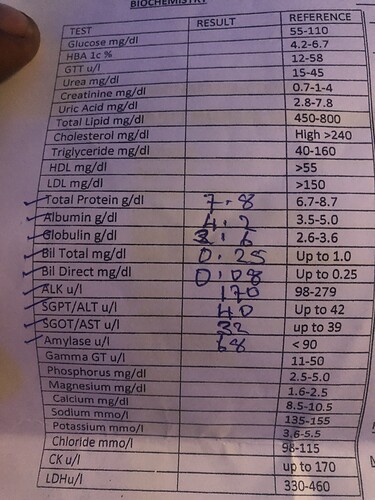 BIOCHEMISTRY
TEST RESULT REFERENCE
Glucose mg/dl 55-110
HBA 1c % 4.2-6.7
GTT u/l 12-58
Urea mg/dl 15-45
Creatinine mg/dl 0.7-1-4
Uric Acid mg/dl 2.8-7.8
Total Lipid mg/dl 450-800
Cholesterol mg/dl High >240
Triglyceride mg/dl 40-160
HDL mg/dl >55
LDL mg/dl >150
Total Protein g/dl 7.8 6.7-8.7
Albumin g/dl 4.2 3.5-5.0
Globulin g/dl 3.6 2.6-3.6
Bil Total mg/dl 0.25 Up to 1.0
Bil Direct mg/dl 0.08 Up to 0.25
ALK u/l 170 98-279
SGPT/ALT u/l 40 Up to 42
SGOT/AST u/l 32 up to 39
Amylase u/l 68 < 90
Gamma GT u/l 11-50
Phosphorus mg/dl 2.5-5.0
Magnesium mg/dl 1.6-2.5
Calcium mg/dl 8.5-10.5
Sodium mmo/l 135-155
Potassium mmo/l 3.6-5.5
Chloride mmo/l 98-115
CK u/l up to 170
LDHu/l 330-460